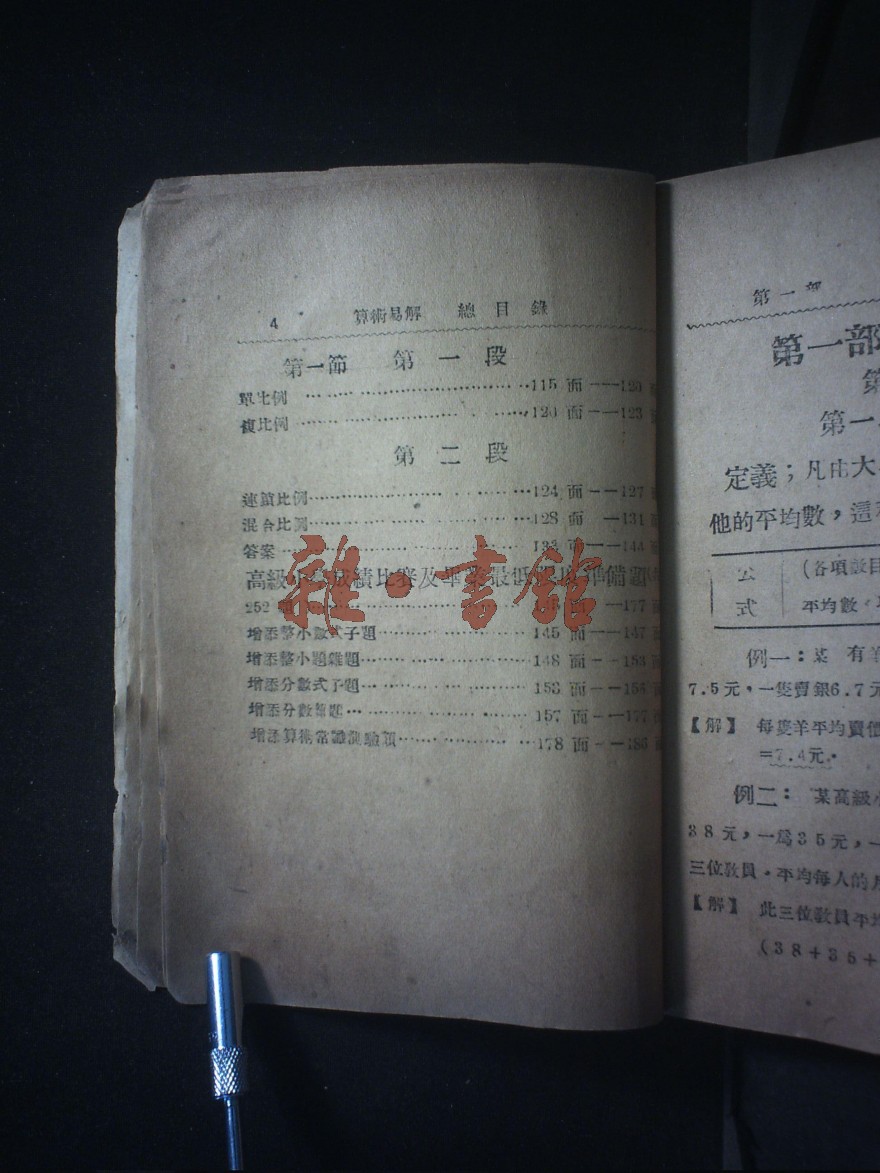 4 算術易解 總目錄
第一節 第一段
單比例 115面——120
複比例 120面——123
第二段
連鎖比例 124面——127
混合比例 128面—131
答案 133面——144
高級小學成績比賽及畢業最低 準備題
252題 面——177
增添整小數式子題 145面——147
增添整小題雜題 148面——153
增添分數式子題 153面——15
增添分數雜題 157面——177
增添算術常識測驗題 178面——186
雜·書館
第一部
第一部
第
第一
定義；凡由大
他的平均數，這
公式
(各項數目
平均數
例一：某 有羊
7.5元，一隻賣銀6.7元
【解】 每隻羊平均賣價
=7.4元.
例二： 某高級小
38元，一為35元，一
三位教員．平均每人的月
【解】 此三位教員平均
(38+35+